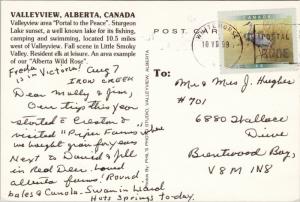 VALLEYVIEW, ALBERTA, CANADA
Valleyview area "Portal to the Peace". Sturgeon
Lake sunset, a well known lake for its fishing,
camping and swimming, located 10.5 miles
west of Valleyview. Fall scene in Little Smoky
Valley. President elk at leisure. An area sample
of our "Alberta Wild Rose".
POST CARD
Freda
in Victoria! Aug 7
IRON CREEK
Dear Molly & Jim,
Our trips this year
started & Creston &
visited "Piper Farms where
we bought grain for years
Next to David & Jill
in Red Deer. Loved
Alberta farms! Round
bales & Canola. Swan in Liard
Hots Springs to-day.
PHIL'S PHOTO STUDIO, VALLEYVIEW, ALBERTA
To:
Mr & Mrs J. Hughes
#701
6880 Wallace
Drive
Brentwood Bay,
V8M 1N8